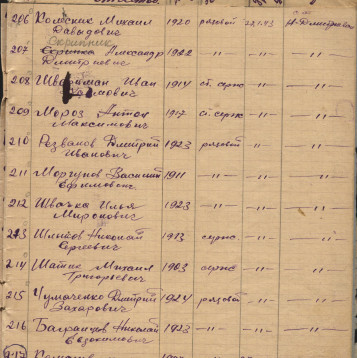 206 Полескик Михаил 1920 рядовой 22.1.43 с.ш. Н-Дмитровка
Давыдович
Скрипник
207 Скрипка Александр 1922 —〃— —〃— —〃—
Дмитриевич
208 Иван 1914 ст. серж —〃— —〃—
209 Мороз Антон 1917 ст. серж —〃— —〃—
Максимович
210 Резванов Дмитрий 1923 рядовой —〃— —〃—
Иванович
211 Моргунов Василий 1911 —〃— —〃— —〃—
Ефимович
212 Швачка Илья 1923 —〃— —〃— —〃—
Миронович
213 Николай 1913 серж —〃— —〃—
Сергеевич
214 Шапик Михаил 1903 серж —〃— —〃—
Григорьевич
215 Чумаченко Дмитрий 1924 рядовой —〃— —〃—
Захарович
216 Багранцов Николай 1923 —〃— —〃— —〃—
Евдокимович
217